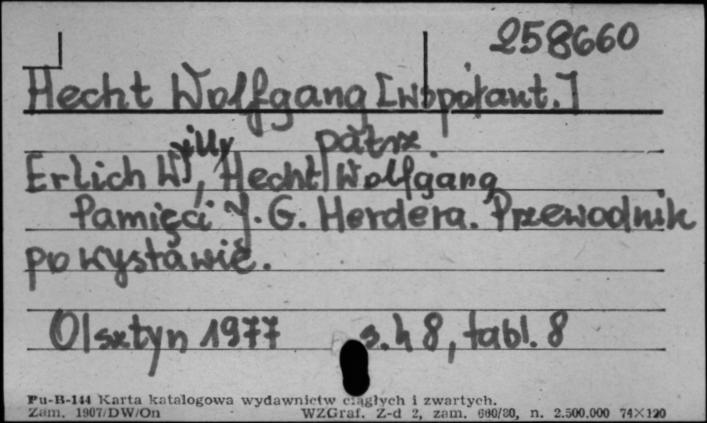 258660
Hecht Wolfgang [współaut.]
patrz
Erlich Willy, Hecht Wolfgang
Pamięci J. G. Herdera. Przewodnik
po wystawie.
Olsztyn 1977 s. 48, tabl. 8
Pu-B-144 Karta katalogowa wydawnictw ciągłych i zwartych.
Zam. 1907/DW/On WZGraf. Z-d 2, zam. 680/80, n. 2.500.000 74×120